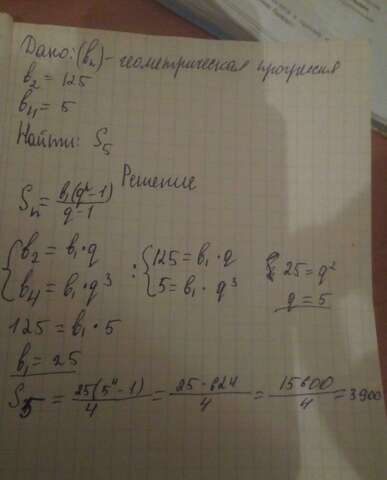 Дано: (bₙ) - геометрическая прогрессия
b₂ = 125
b₄ = 5
Найти: S₅
Решение
Sₙ = b₁(qⁿ-1) / q-1
{ b₂ = b₁·q : { 125 = b₁·q 25 = q²
b₄ = b₁·q³ 5 = b₁·q³ q = 5
125 = b₁·5
b₁ = 25
S₅ = 25(5⁴-1) / 4 = 25·624 / 4 = 15600 / 4 = 3900